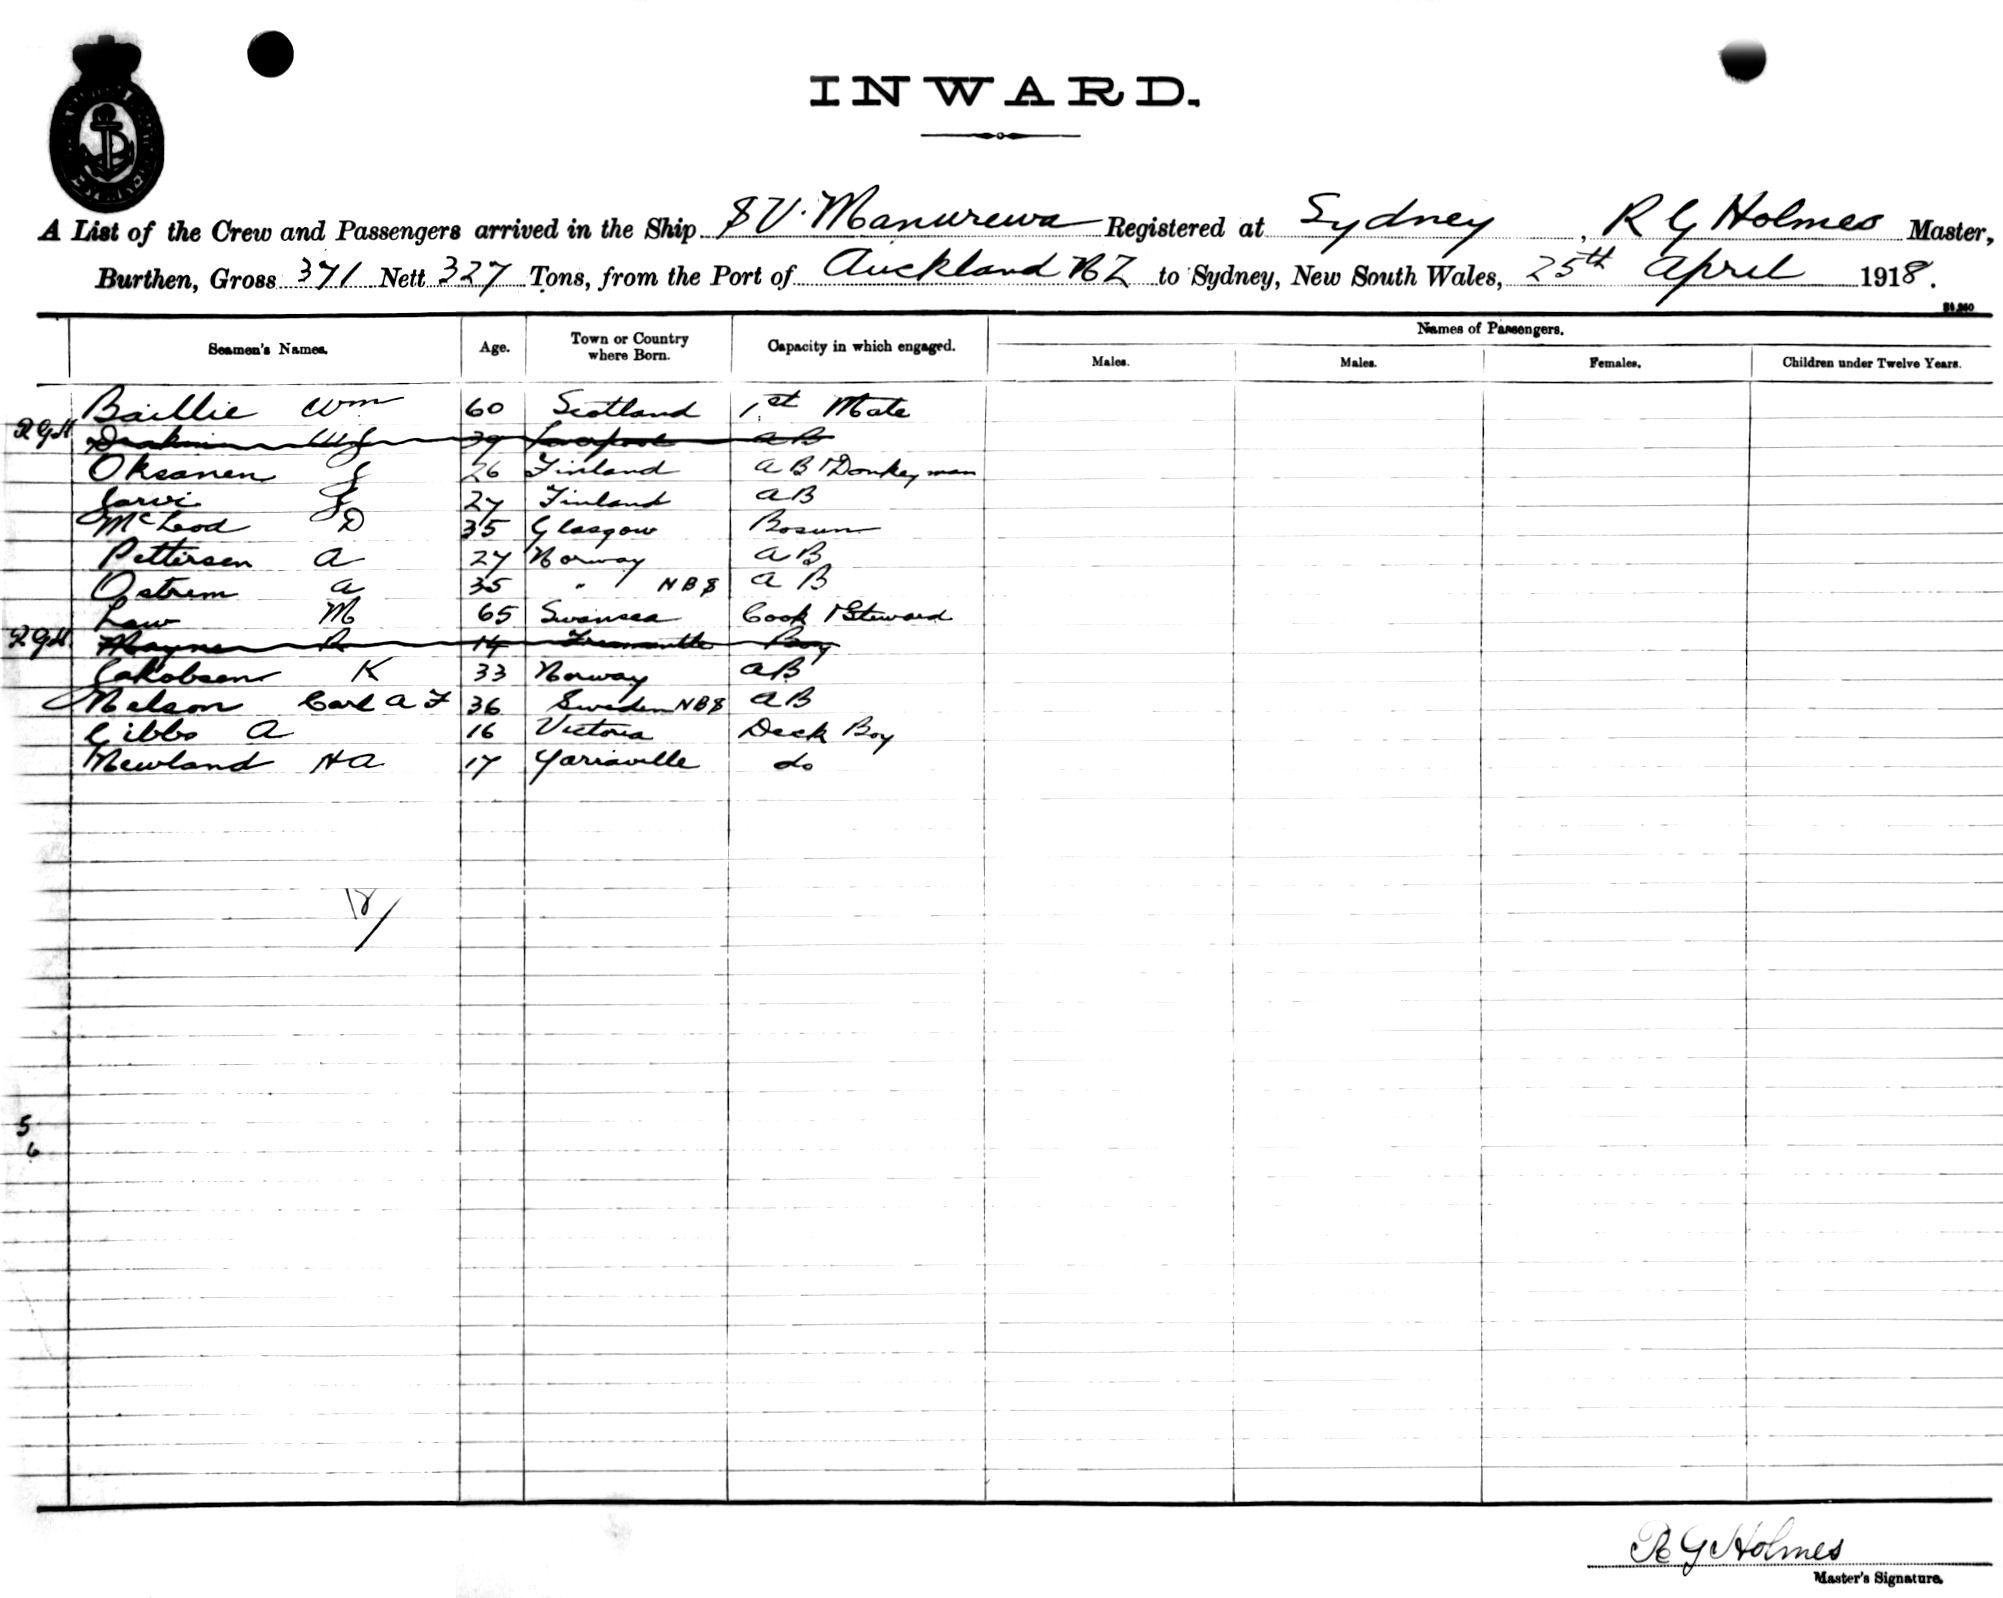 INWARD.
A List of the Crew and Passengers arrived in the Ship S V. Manurewa Registered at Sydney, R G Holmes Master,
Burthen, Gross 371 Nett 327 Tons, from the Port of Auckland NZ to Sydney, New South Wales, 25th April 1918.
Seamen's Names. Age. Town or Country where Born. Capacity in which engaged. Names of Passengers.
Males. Males. Females. Children under Twelve Years.
Baillie Wm 60 Scotland 1st Mate
RGH Deakin WJ 39 Liverpool AB
Oksanen J 26 Finland AB & Donkeyman
Jarvi J 27 Finland AB
McLeod D 35 Glasgow Bosun
Pettersen A 27 Norway AB
Ostrem A 35 " NBS AB
Law M 65 Swansea Cook & Steward
RGH Mayne R 14 Fremantle Boy
Jakobsen K 33 Norway AB
Nelson Carl A F 36 Sweden NBS AB
Gibbs A 16 Victoria Deck Boy
Newland HA 17 Yarraville do
12/
5
6
R G Holmes
Master's Signature.